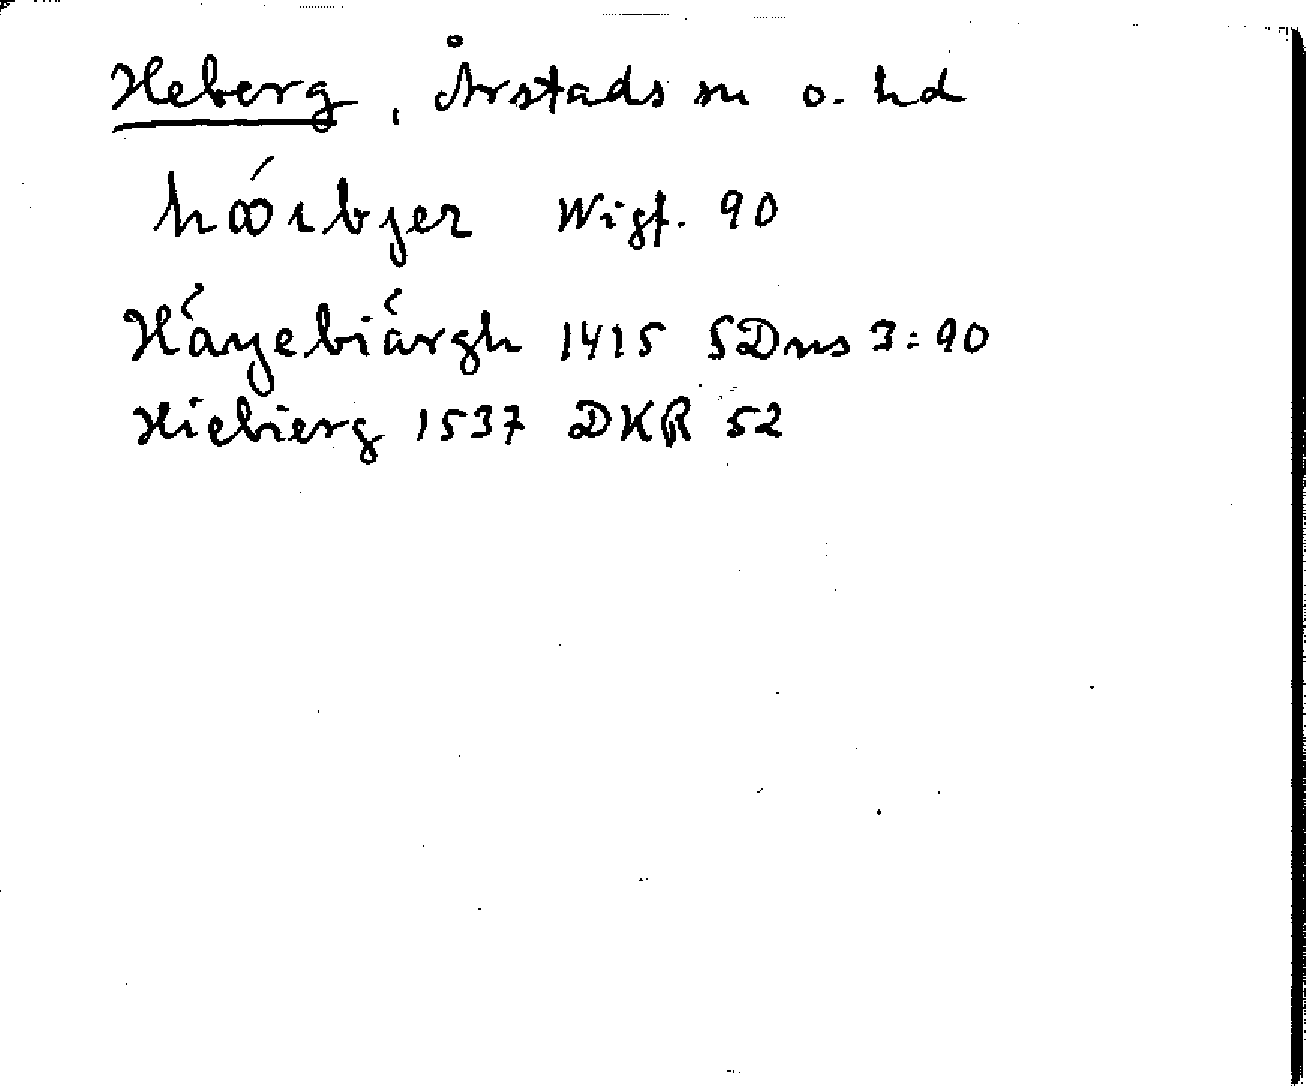 Heberg, Årstads sn o. hd
Wigf. 90
Háyebiárgh 1415 SDns 3:90
Hiebierg 1537 DKR 52